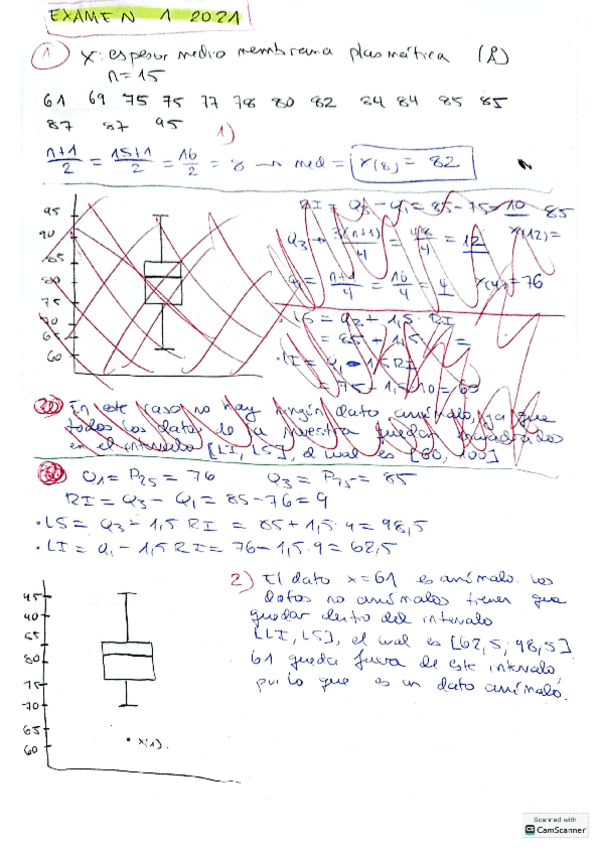 EXAMEN 1 2021
1 X: espesor medio membrana plasmática (Å)
n=15
61 69 75 75 77 78 80 82 84 84 85 85
87 87 95
1)
n+1/2 = 15+1/2 = 16/2 = 8 → med = x(8) = 82
95
90
85
80
75
70
65
60
RI = Q3 - Q1 = 85-75 = 10 85
Q3 → 3(n+1)/4 = 48/4 = 12 x(12)=
Q1 = n+1/4 = 16/4 = 4 x(4)=76
·LS = Q3 + 1,5·RI
= 85 + 1,5 =
·LI = Q1 - 1,5 RI
= 75 - 1,5·10 = 60
En este caso no hay ningún dato anómalo, ya que
todos los datos de la muestra quedan encuadrados
en el intervalo [LI, LS], el cual es [60, 100]
Q1 = P25 = 76 Q3 = P75 = 85
RI = Q3 - Q1 = 85-76 = 9
·LS = Q3 + 1,5 RI = 85 + 1,5·9 = 98,5
·LI = Q1 - 1,5 RI = 76 - 1,5·9 = 62,5
2) El dato x=61 es anómalo. Los
datos no anómalos tienen que
quedar dentro del intervalo
[LI, LS], el cual es [62,5; 98,5]
61 queda fuera de este intervalo,
por lo que es un dato anómalo.
95
90
85
80
75
70
65
60
x(1).
Scanned with
CS CamScanner